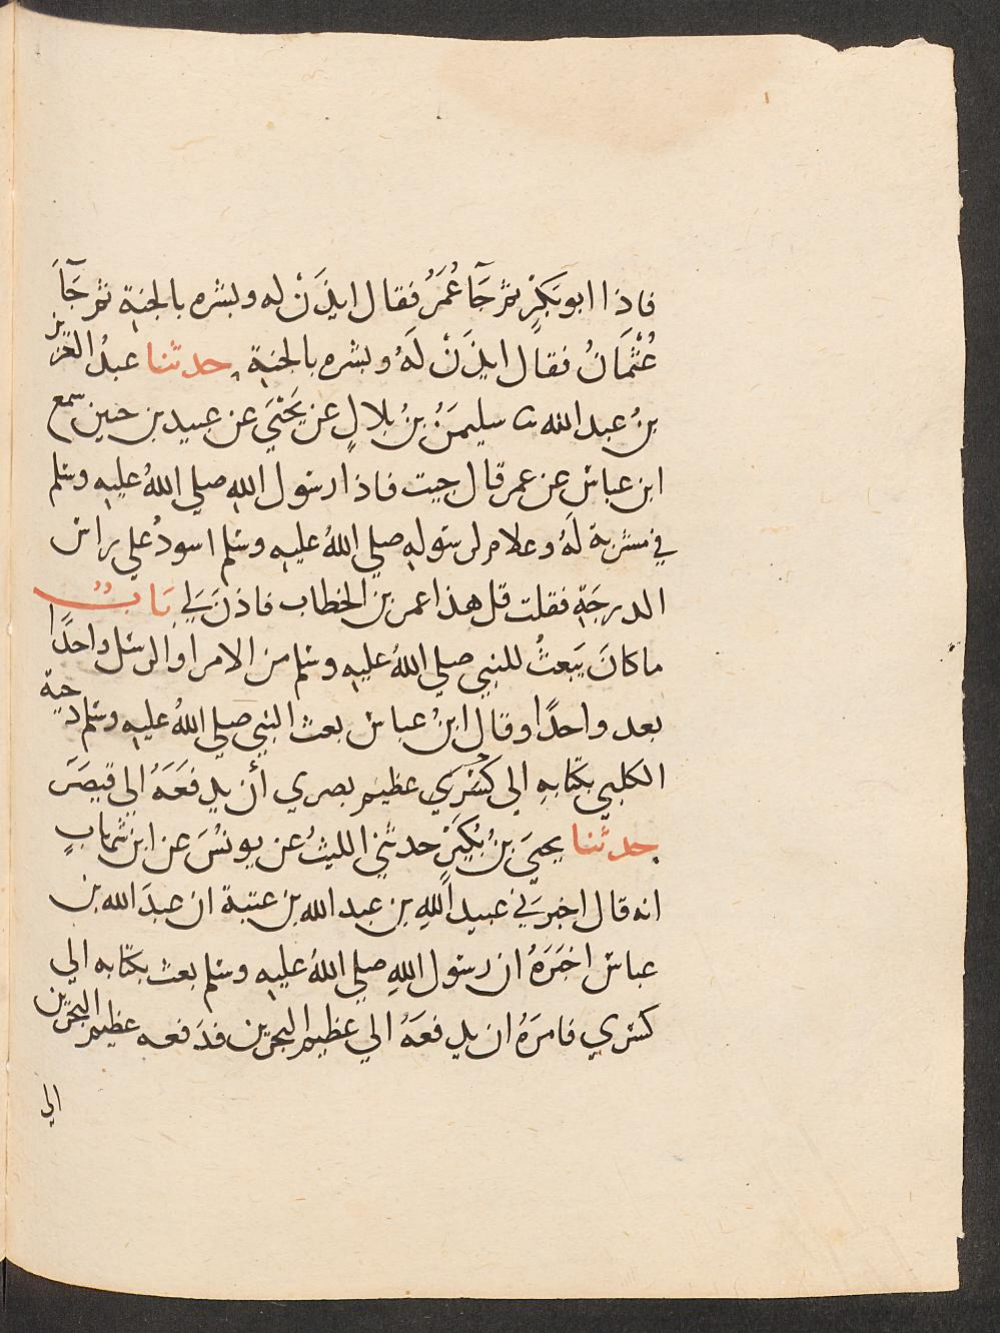 فاذا ابو بَكرٍ ثم جَآ عُمَرُ فقال ايذَنْ له وبشره بالجنة ثم جَآَ
عُثْمَانُ فقال ايذَنْ لَهُ وبشره بالجنة حدثنا عبدُ العزيز
بنُ عبد الله ثنا سليمَنُ بنُ بلالٍ عن يَحْيَى عن عبيد بن حنين سمع
ابن عباسٍ عن عمر قال جيت فاذا رسول اللهِ صلي اللهُ عليه وسلم
في مشربة لَهُ وغلام لرسوله صلي اللهُ عليه وسلم اسودُ علي راس
الدرجَةِ فقلت قل هذا عمر بن الخطاب فاذنَ لِي بَابُ
ما كانَ يَبعثُ للنبي صلي اللهُ عليه وسلم من الامرا والرسل واحدًا
بعد واحدًا وقال ابنُ عباس بعث النبي صلي اللهُ عليه وسلم دحية
الكلبي بكتابهِ الى كسْري عظيم بصري أن يدفعَهُ الي قيصَرَ
حدثنا يحيَى بنُ بُكَيرٍ حدثني الليثُ عن يونُسَ عن ابن شهابٍ
انه قال اخبرَنِي عبيد اللهِ بن عبد الله بن عتبة ان عبدَ الله بن
عباس اخبَرَهُ ان رسول اللهِ صلي اللهُ عليه وسلم بعث بكتابه الي
كسْري فامرَهُ ان يدفعَهُ الي عظيم البحرين فدَفعه عظيم البحرين
الي